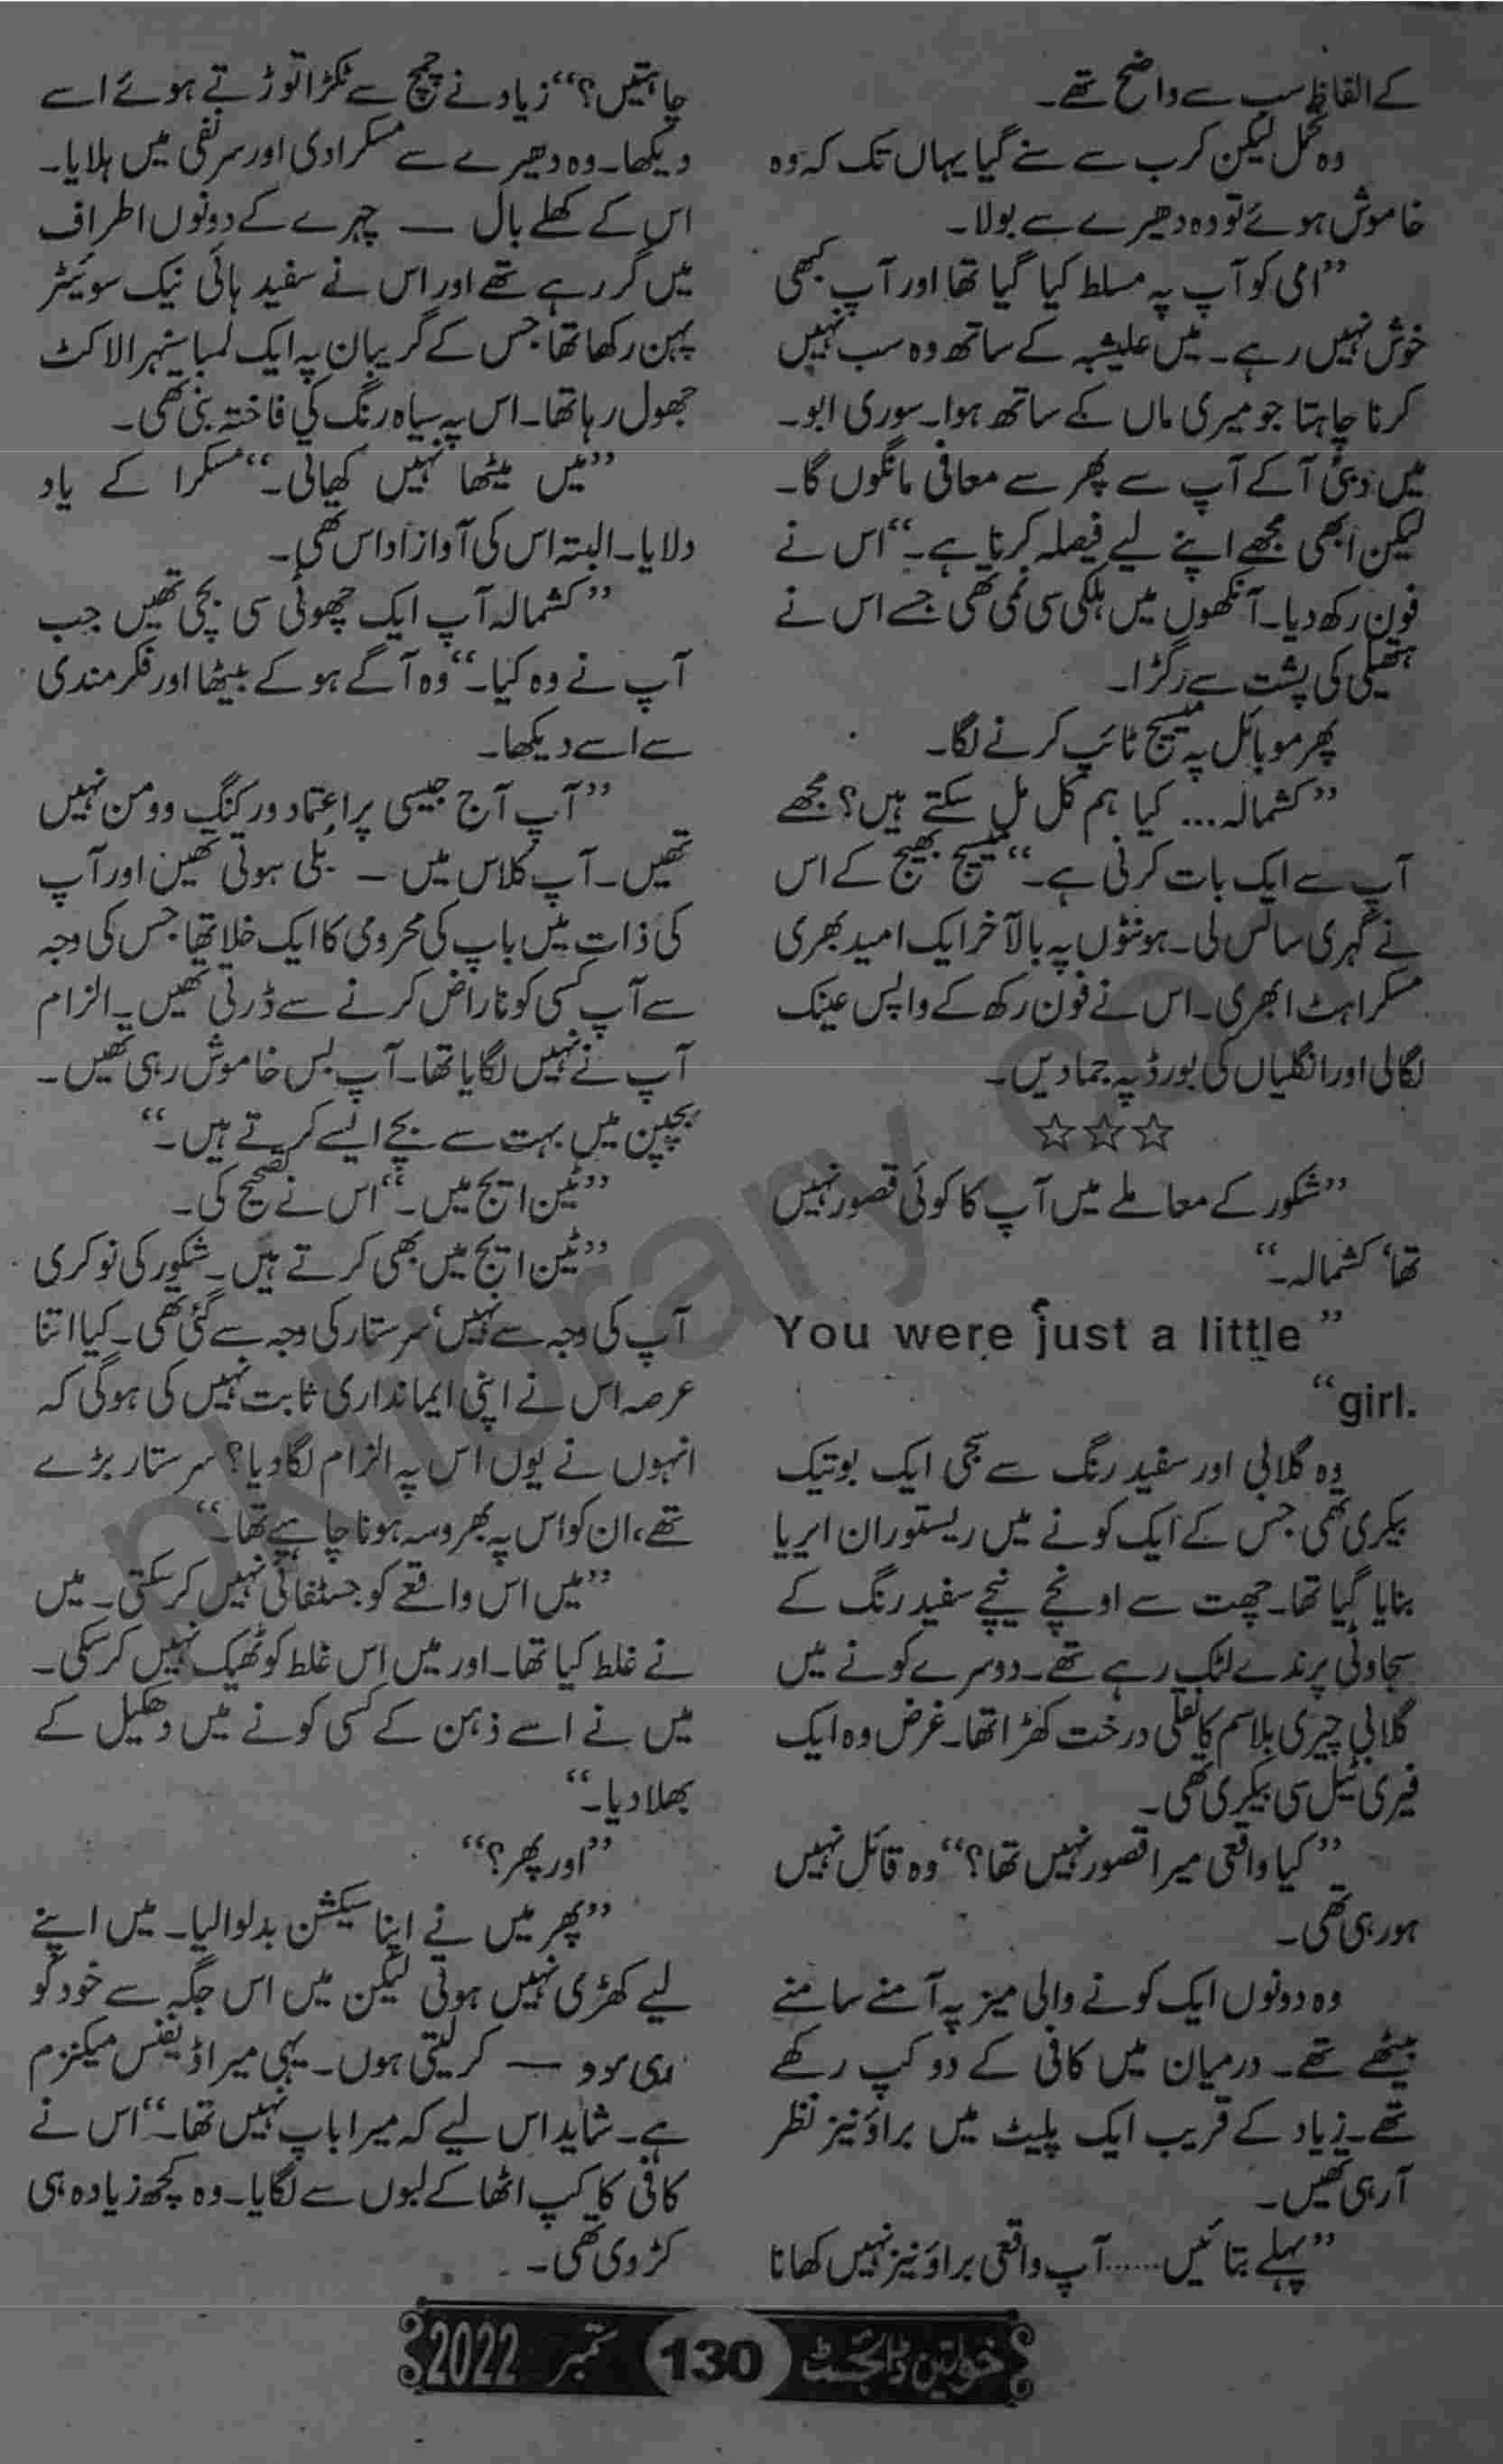 کے الفاظ سب سے واضح تھے۔
وہ تحمل لیکن کرب سے سنے گیا یہاں تک کہ وہ
خاموش ہوئے تو وہ دھیرے سے بولا۔
”امی کو آپ پہ مسلط کیا گیا تھا اور آپ کبھی
خوش نہیں رہے۔ میں علیشبہ کے ساتھ وہ سب نہیں
کرنا چاہتا جو میری ماں کے ساتھ ہوا۔ سوری ابو۔
میں دبئی آ کے آپ سے پھر سے معافی مانگوں گا۔
لیکن ابھی مجھے اپنے لیے فیصلہ کرنا ہے۔“ اس نے
فون رکھ دیا۔ آنکھوں میں ہلکی سی نمی تھی جسے اس نے
ہتھیلی کی پشت سے رگڑا۔
پھر موبائل پہ میسیج ٹائپ کرنے لگا۔
”کشمالہ... کیا ہم کل مل سکتے ہیں؟ مجھے
آپ سے ایک بات کرنی ہے۔“ میسیج بھیج کے اس
نے گہری سانس لی۔ ہونٹوں پہ بالآخر ایک امید بھری
مسکراہٹ ابھری۔ اس نے فون رکھ کے واپس عینک
لگالی اور انگلیاں کی بورڈ پہ جما دیں۔
☆☆☆
”شکور کے معاملے میں آپ کا کوئی قصور نہیں
تھا، کشمالہ۔“
”You were just a little
girl.“
وہ گلابی اور سفید رنگ سے سجی ایک بوتیک
بیکری تھی جس کے ایک کونے میں ریستوران ایریا
بنایا گیا تھا۔ چھت سے اونچے نیچے سفید رنگ کے
سجاوٹی پرندے لٹک رہے تھے۔ دوسرے کونے میں
گلابی چیری بلاسم کا نقلی درخت کھڑا تھا۔ غرض وہ ایک
فیری ٹیل سی بیکری تھی۔
”کیا واقعی میرا قصور نہیں تھا؟“ وہ قائل نہیں
ہو رہی تھی۔
وہ دونوں ایک کونے والی میز پہ آمنے سامنے
بیٹھے تھے۔ درمیان میں کافی کے دو کپ رکھے
تھے۔ زیاد کے قریب ایک پلیٹ میں براؤنیز نظر
آرہی تھیں۔
”پہلے بتائیں......آپ واقعی براؤنیز نہیں کھانا
چاہتیں؟“ زیاد نے چمچ سے ٹکڑا توڑتے ہوئے اسے
دیکھا۔ وہ دھیرے سے مسکرا دی اور سر نفی میں ہلایا۔
اس کے کھلے بال — چہرے کے دونوں اطراف
میں گر رہے تھے اور اس نے سفید ہائی نیک سوئیٹر
پہن رکھا تھا جس کے گریبان پہ ایک لمبا سنہرا لاکٹ
جھول رہا تھا۔ اس پہ سیاہ رنگ کی فاختہ بنی تھی۔
”میں میٹھا نہیں کھاتی۔“ مسکرا کے یاد
دلایا۔ البتہ اس کی آواز اداس تھی۔
”کشمالہ آپ ایک چھوٹی سی بچی تھیں جب
آپ نے وہ کیا۔“ وہ آگے ہو کے بیٹھا اور فکرمندی
سے اسے دیکھا۔
”آپ آج جیسی پراعتماد ورکنگ وومن نہیں
تھیں۔ آپ کلاس میں — بلی ہوتی تھیں اور آپ
کی ذات میں باپ کی محرومی کا ایک خلا تھا جس کی وجہ
سے آپ کسی کو ناراض کرنے سے ڈرتی تھیں۔ الزام
آپ نے نہیں لگایا تھا۔ آپ بس خاموش رہی تھیں۔
بچپن میں بہت سے بچے ایسے کرتے ہیں۔“
”ٹین ایج میں۔“ اس نے تصحیح کی۔
”ٹین ایج میں بھی کرتے ہیں۔ شکور کی نوکری
آپ کی وجہ سے نہیں، سر ستار کی وجہ سے گئی تھی۔ کیا اتنا
عرصہ اس نے اپنی ایمانداری ثابت نہیں کی ہوگی کہ
انہوں نے یوں اس پہ الزام لگا دیا؟ سر ستار بڑے
تھے، ان کو اس پہ بھروسہ ہونا چاہیے تھا۔“
”میں اس واقعے کو جسٹفائی نہیں کرسکتی۔ میں
نے غلط کیا تھا۔ اور میں اس غلط کو ٹھیک نہیں کرسکی۔
میں نے اسے ذہن کے کسی کونے میں دھکیل کے
بھلا دیا۔“
”اور پھر؟“
”پھر میں نے اپنا سیکشن بدلوالیا۔ میں اپنے
لیے کھڑی نہیں ہوتی لیکن میں اس جگہ سے خود کو
ری موو — کر لیتی ہوں۔ یہی میرا ڈیفنس میکنزم
ہے۔ شاید اس لیے کہ میرا باپ نہیں تھا۔“ اس نے
کافی کا کپ اٹھا کے لبوں سے لگایا۔ وہ کچھ زیادہ ہی
کڑوی تھی۔
خواتین ڈائجسٹ 130 ستمبر 2022
pklibrary.com